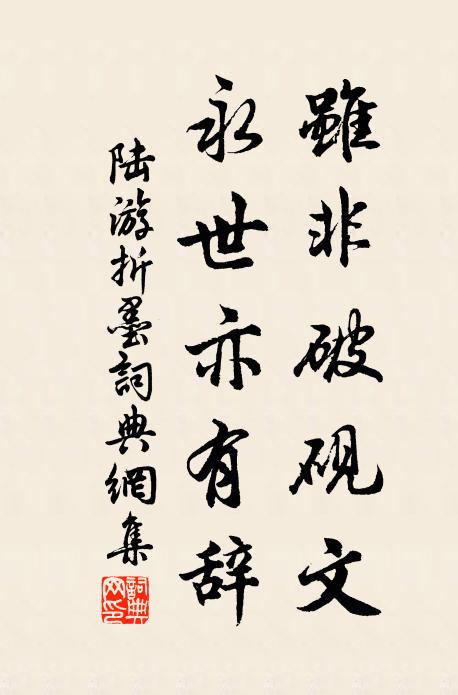 雖非破硯文
永世亦有辞
陆游折墨詞典網集
詞典网印